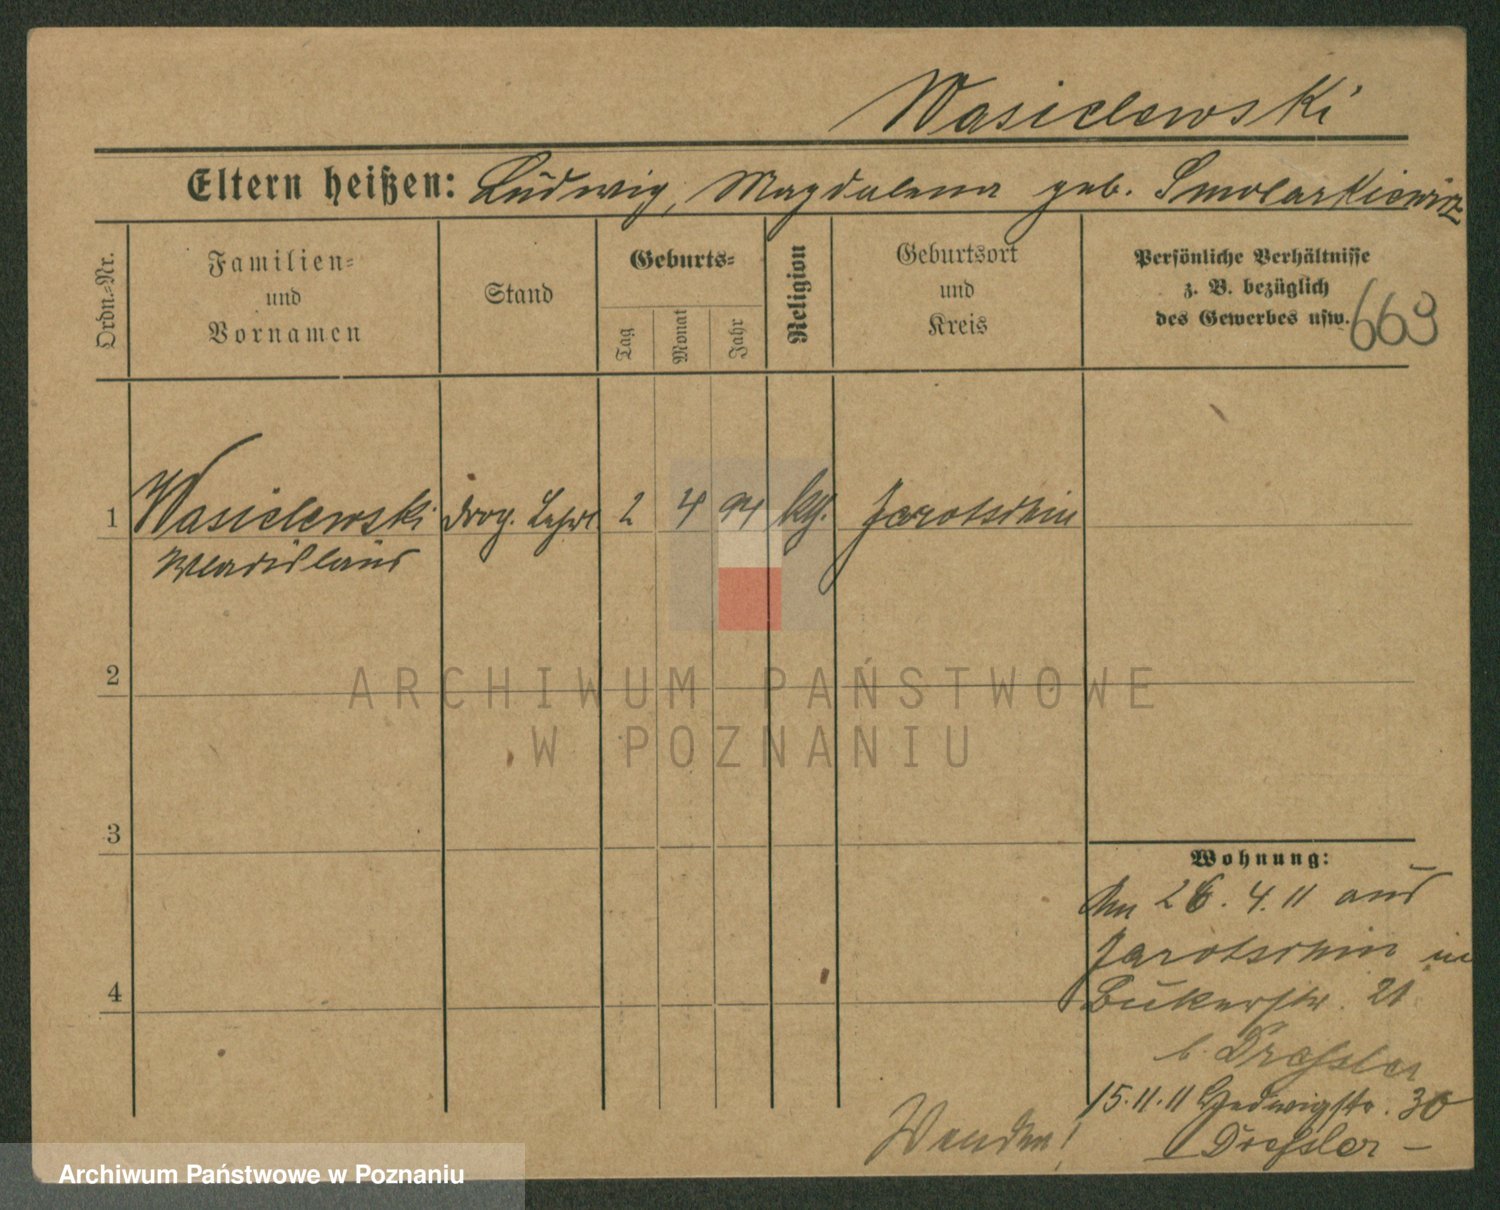 Wasielewski
Eltern heißen: Ludwig, Magdalena geb. Smolarkiewicz
Ordn.=Nr.
Familien=
und
Vornamen
Stand
Geburts=
Tag
Monat
Jahr
Religion
Geburtsort
und
Kreis
Persönliche Verhältnisse
z. B. bezüglich
des Gewerbes usw.
669
1 Wasielewski Drog. Lehrl 2 4 94 kth. Jarotschin
Wladislaus
2
ARCHIWUM PAŃSTWOWE
W POZNANIU
3
Wohnung:
Am 26. 4. 11 aus
Jarotschin in
4
Bukerstr. 21
b. Dressler
15.11.11 Hedwigstr. 30
Dressler –
Wenden!
Archiwum Państwowe w Poznaniu